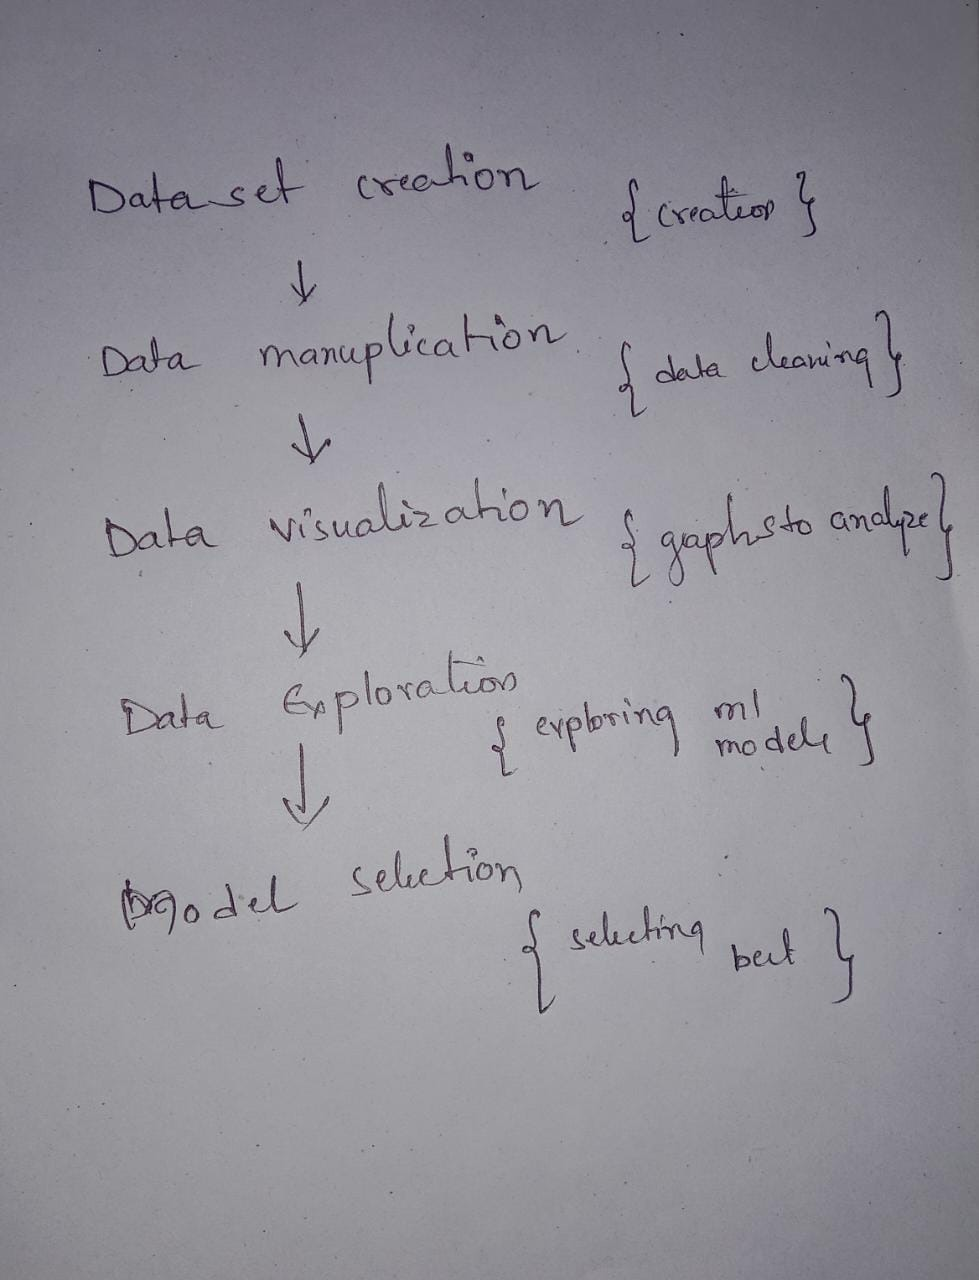 Data set creation { creation }
↓
Data manuplication { data cleaning }
↓
Data visualization { gaphs to analyze }
↓
Data Exploration
{ exploring ml models }
↓
Model selection
{ selecting best }